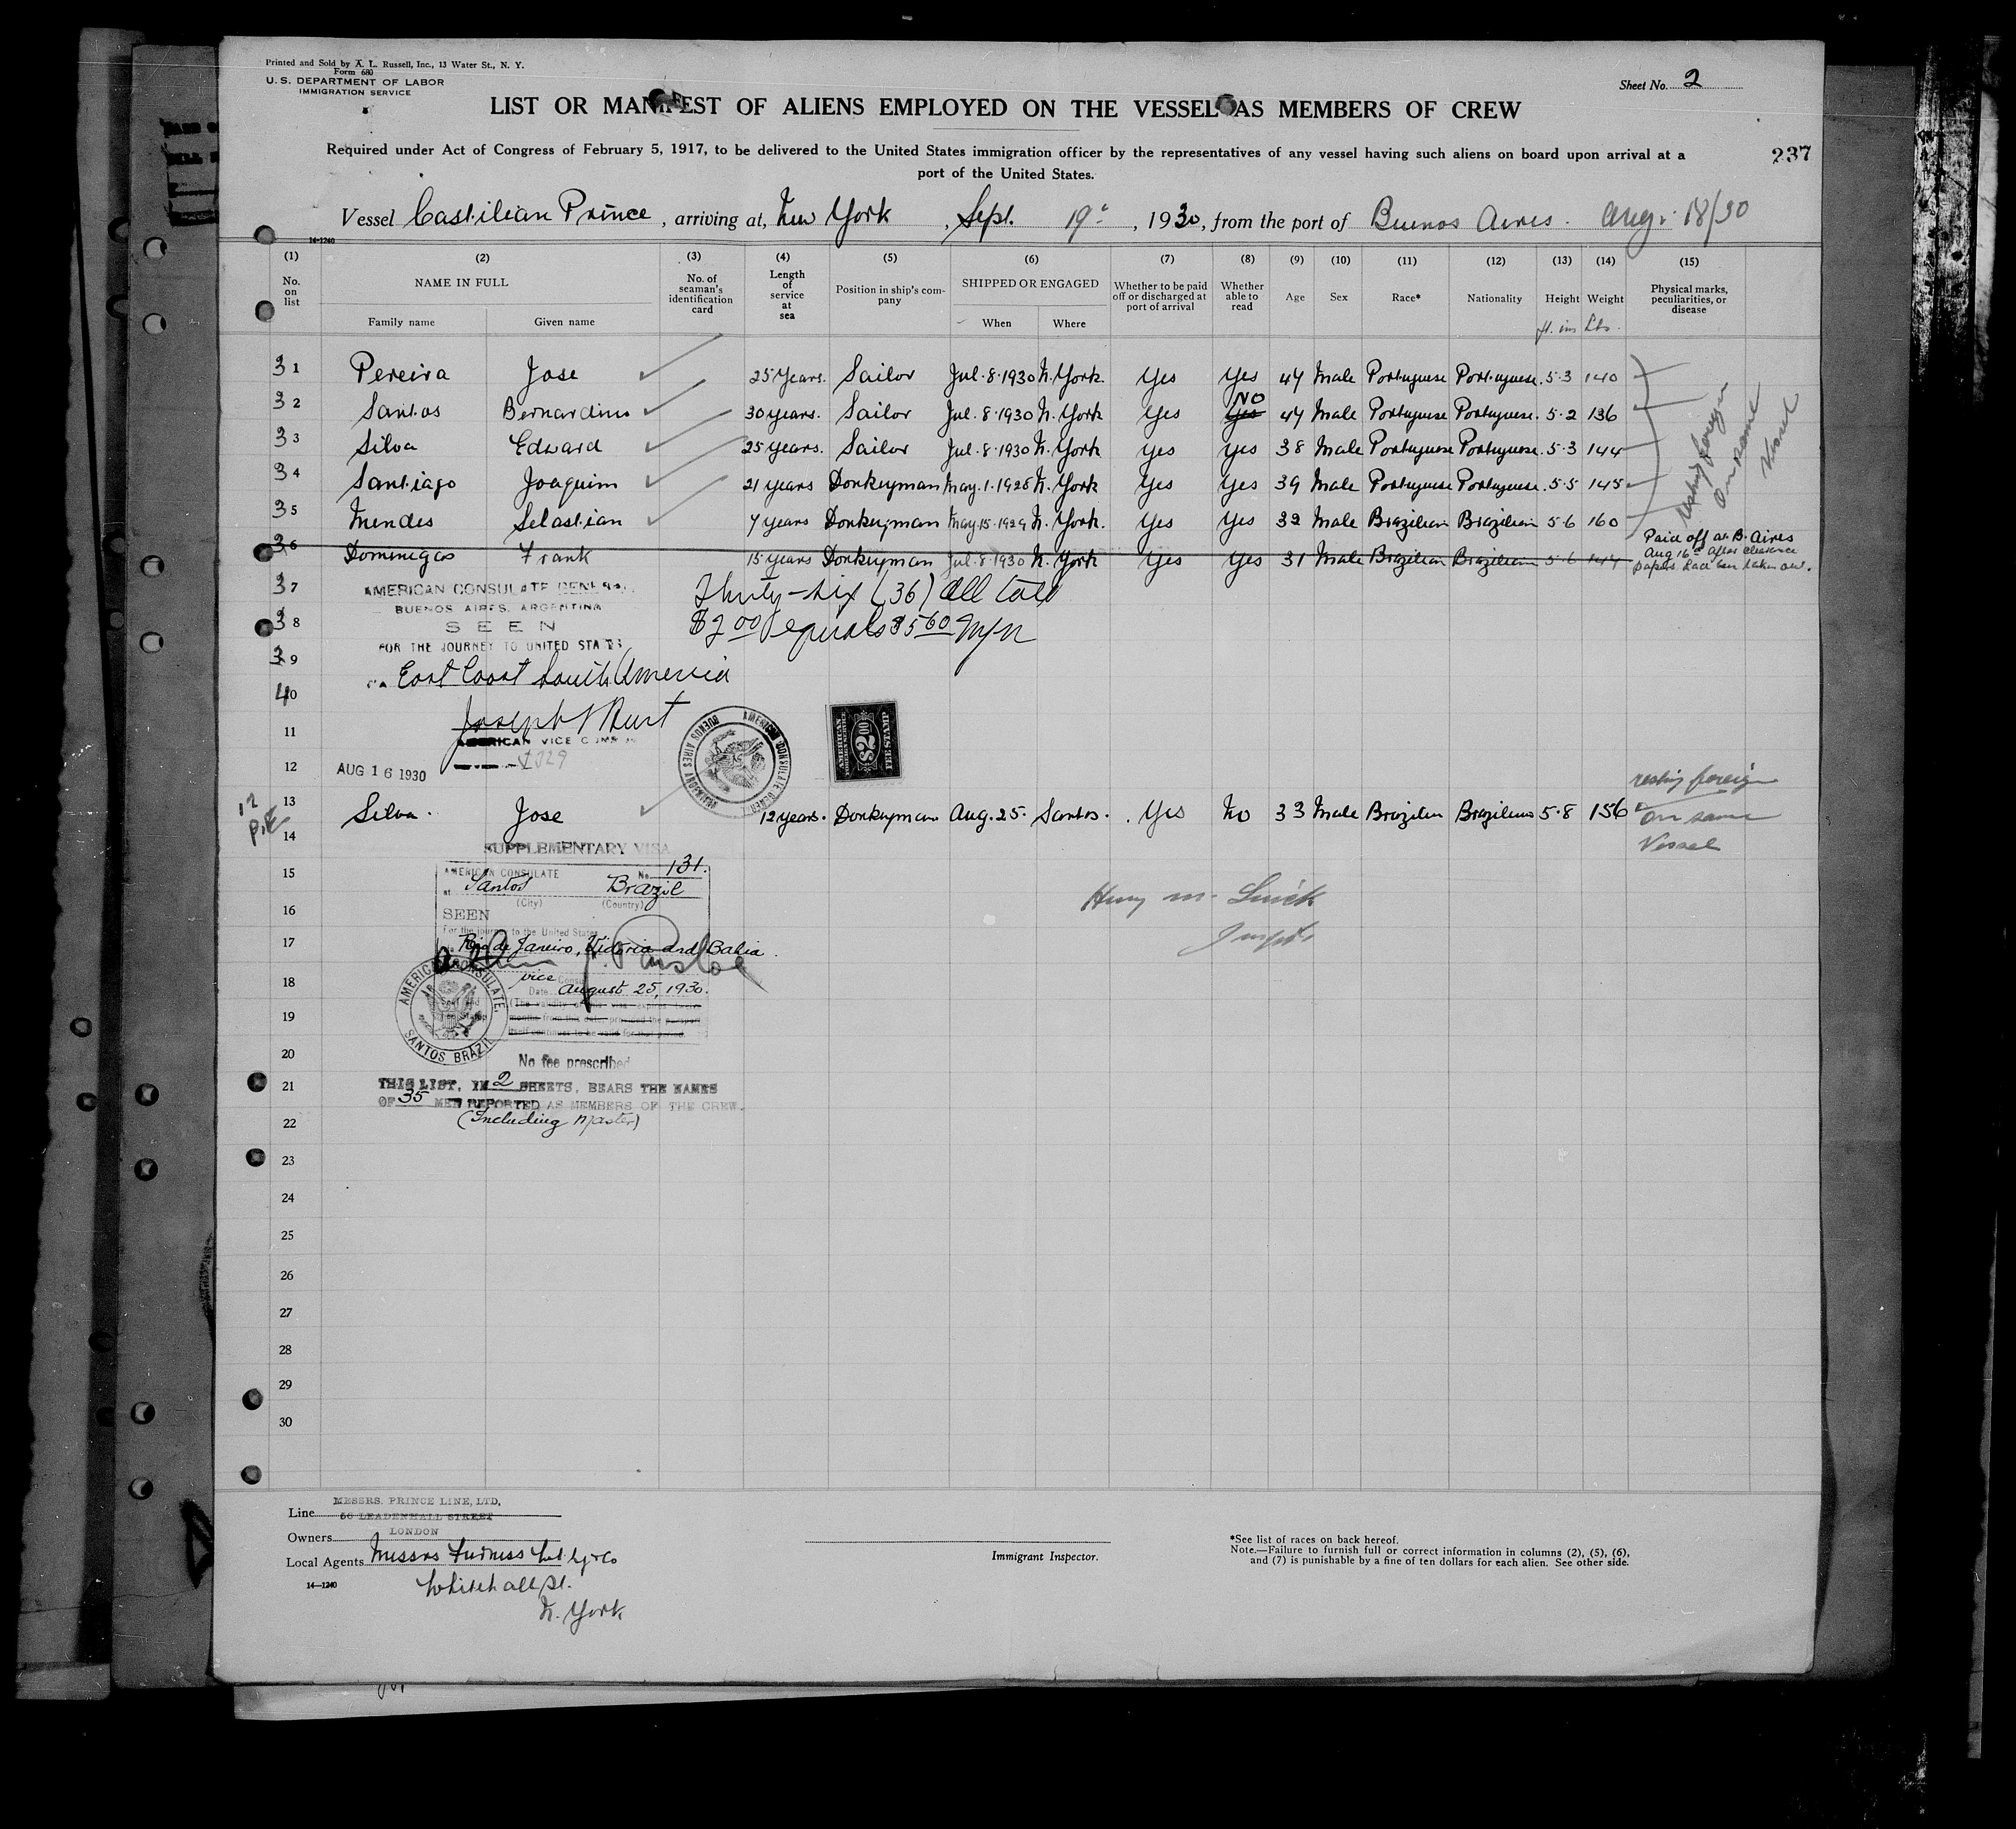 Printed and Sold by A. L. Russell, Inc., 13 Water St., N. Y.
Form 680
U. S. DEPARTMENT OF LABOR
IMMIGRATION SERVICE
Sheet No. 2
LIST OR MANIFEST OF ALIENS EMPLOYED ON THE VESSEL AS MEMBERS OF CREW
Required under Act of Congress of February 5, 1917, to be delivered to the United States immigration officer by the representatives of any vessel having such aliens on board upon arrival at a
port of the United States.
237
Vessel Castilian Prince, arriving at, New York, Sept. 19, 1930, from the port of Buenos Aires. Aug. 18/30
14-1240
(1) (2) (3) (4) (5) (6) (7) (8) (9) (10) (11) (12) (13) (14) (15)
No. on list
NAME IN FULL
Family name
Given name
No. of seaman's identification card
Length of service at sea
Position in ship's company
SHIPPED OR ENGAGED
When
Where
Whether to be paid off or discharged at port of arrival
Whether able to read
Age
Sex
Race*
Nationality
Height
ft. ins
Weight
Lbs.
Physical marks, peculiarities, or disease
31 Pereira Jose 25 Years. Sailor Jul. 8. 1930 N. York. Yes Yes 47 Male Portuguese Portuguese. 5-3 140
32 Santos Bernardino 30 years. Sailor Jul. 8. 1930 N. York Yes Yes NO 47 Male Portuguese Portuguese. 5-2 136
33 Silva Edward 25 years. Sailor Jul. 8. 1930 N. York Yes Yes 38 Male Portuguese Portuguese. 5-3 144
34 Santiago Joaquim 21 years Donkeyman May. 1. 1928 N. York Yes Yes 39 Male Portuguese Portuguese. 5-5 145
35 Mendes Sebastian 7 years Donkeyman May. 15. 1929 N. York. Yes Yes 32 Male Brazilian Brazilian 5-6 160
reship foreign
on same
Vessel
36 Dominegos Frank 15 years Donkeyman Jul. 8 1930 N. York Yes Yes 31 Male Brazilian Brazilian 5-6 144
Paid off at B. Aires
Aug 16th after clearance
papers had been taken out.
37
AMERICAN CONSULATE GENERAL
BUENOS AIRES, ARGENTINA
38
SEEN
39
FOR THE JOURNEY TO UNITED STATES
Thirty-six (36) all told
$2.00 equals $5.60 m/n
VIA East Coast South America
40
11
Joseph Burt
AMERICAN VICE CONSUL
12
AUG 16 1930
AMERICAN CONSULATE GENERAL
BUENOS AIRES ARGENTINA
AMERICAN
FOREIGN SERVICE
$2.00
FEE STAMP
13 Silva. Jose 12 years. Donkeyman Aug. 25. Santos. Yes No 33 Male Brazilian Brazilian 5-8 156
reship foreign
on same
Vessel
14
SUPPLEMENTARY VISA
15
AMERICAN CONSULATE No. 131.
at Santos Brazil
(City) (Country)
16
SEEN
For the journey to the United States
17
Rio de Janeiro, Victoria and Bahia.
18
vice
Date August 25, 1930.
19
(The validity of this visa expires twelve
months from this date, provided the passport
itself continues to be valid for that period.
AMERICAN CONSULATE,
SANTOS BRAZIL
20
No fee prescribed
21
THIS LIST, IN 2 SHEETS, BEARS THE NAMES
OF 35 MEN REPORTED AS MEMBERS OF THE CREW.
22
(Including Master)
23
24
25
26
27
28
29
30
Line MESSRS. PRINCE LINE, LTD,
56 LEADENHALL STREET
Owners LONDON
Local Agents Messrs Furness
Whitehall St.
N. York
14—1240
Immigrant Inspector.
*See list of races on back hereof.
Note.—Failure to furnish full or correct information in columns (2), (5), (6),
and (7) is punishable by a fine of ten dollars for each alien. See other side.